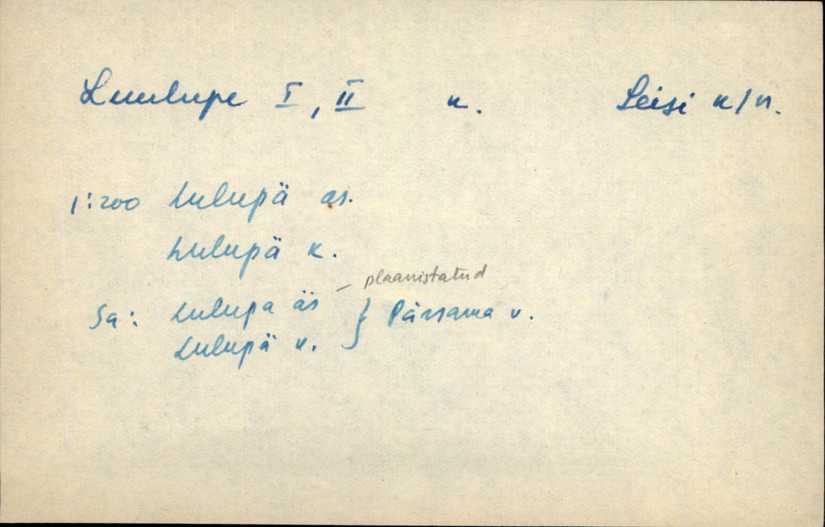 Luulupe I, II k. Leisi k/n.
1:200 Lulupä as.
Lulupä k.
plaanistatud
Sa: Lulupa äs } Pärsama v.
Lulupä k.